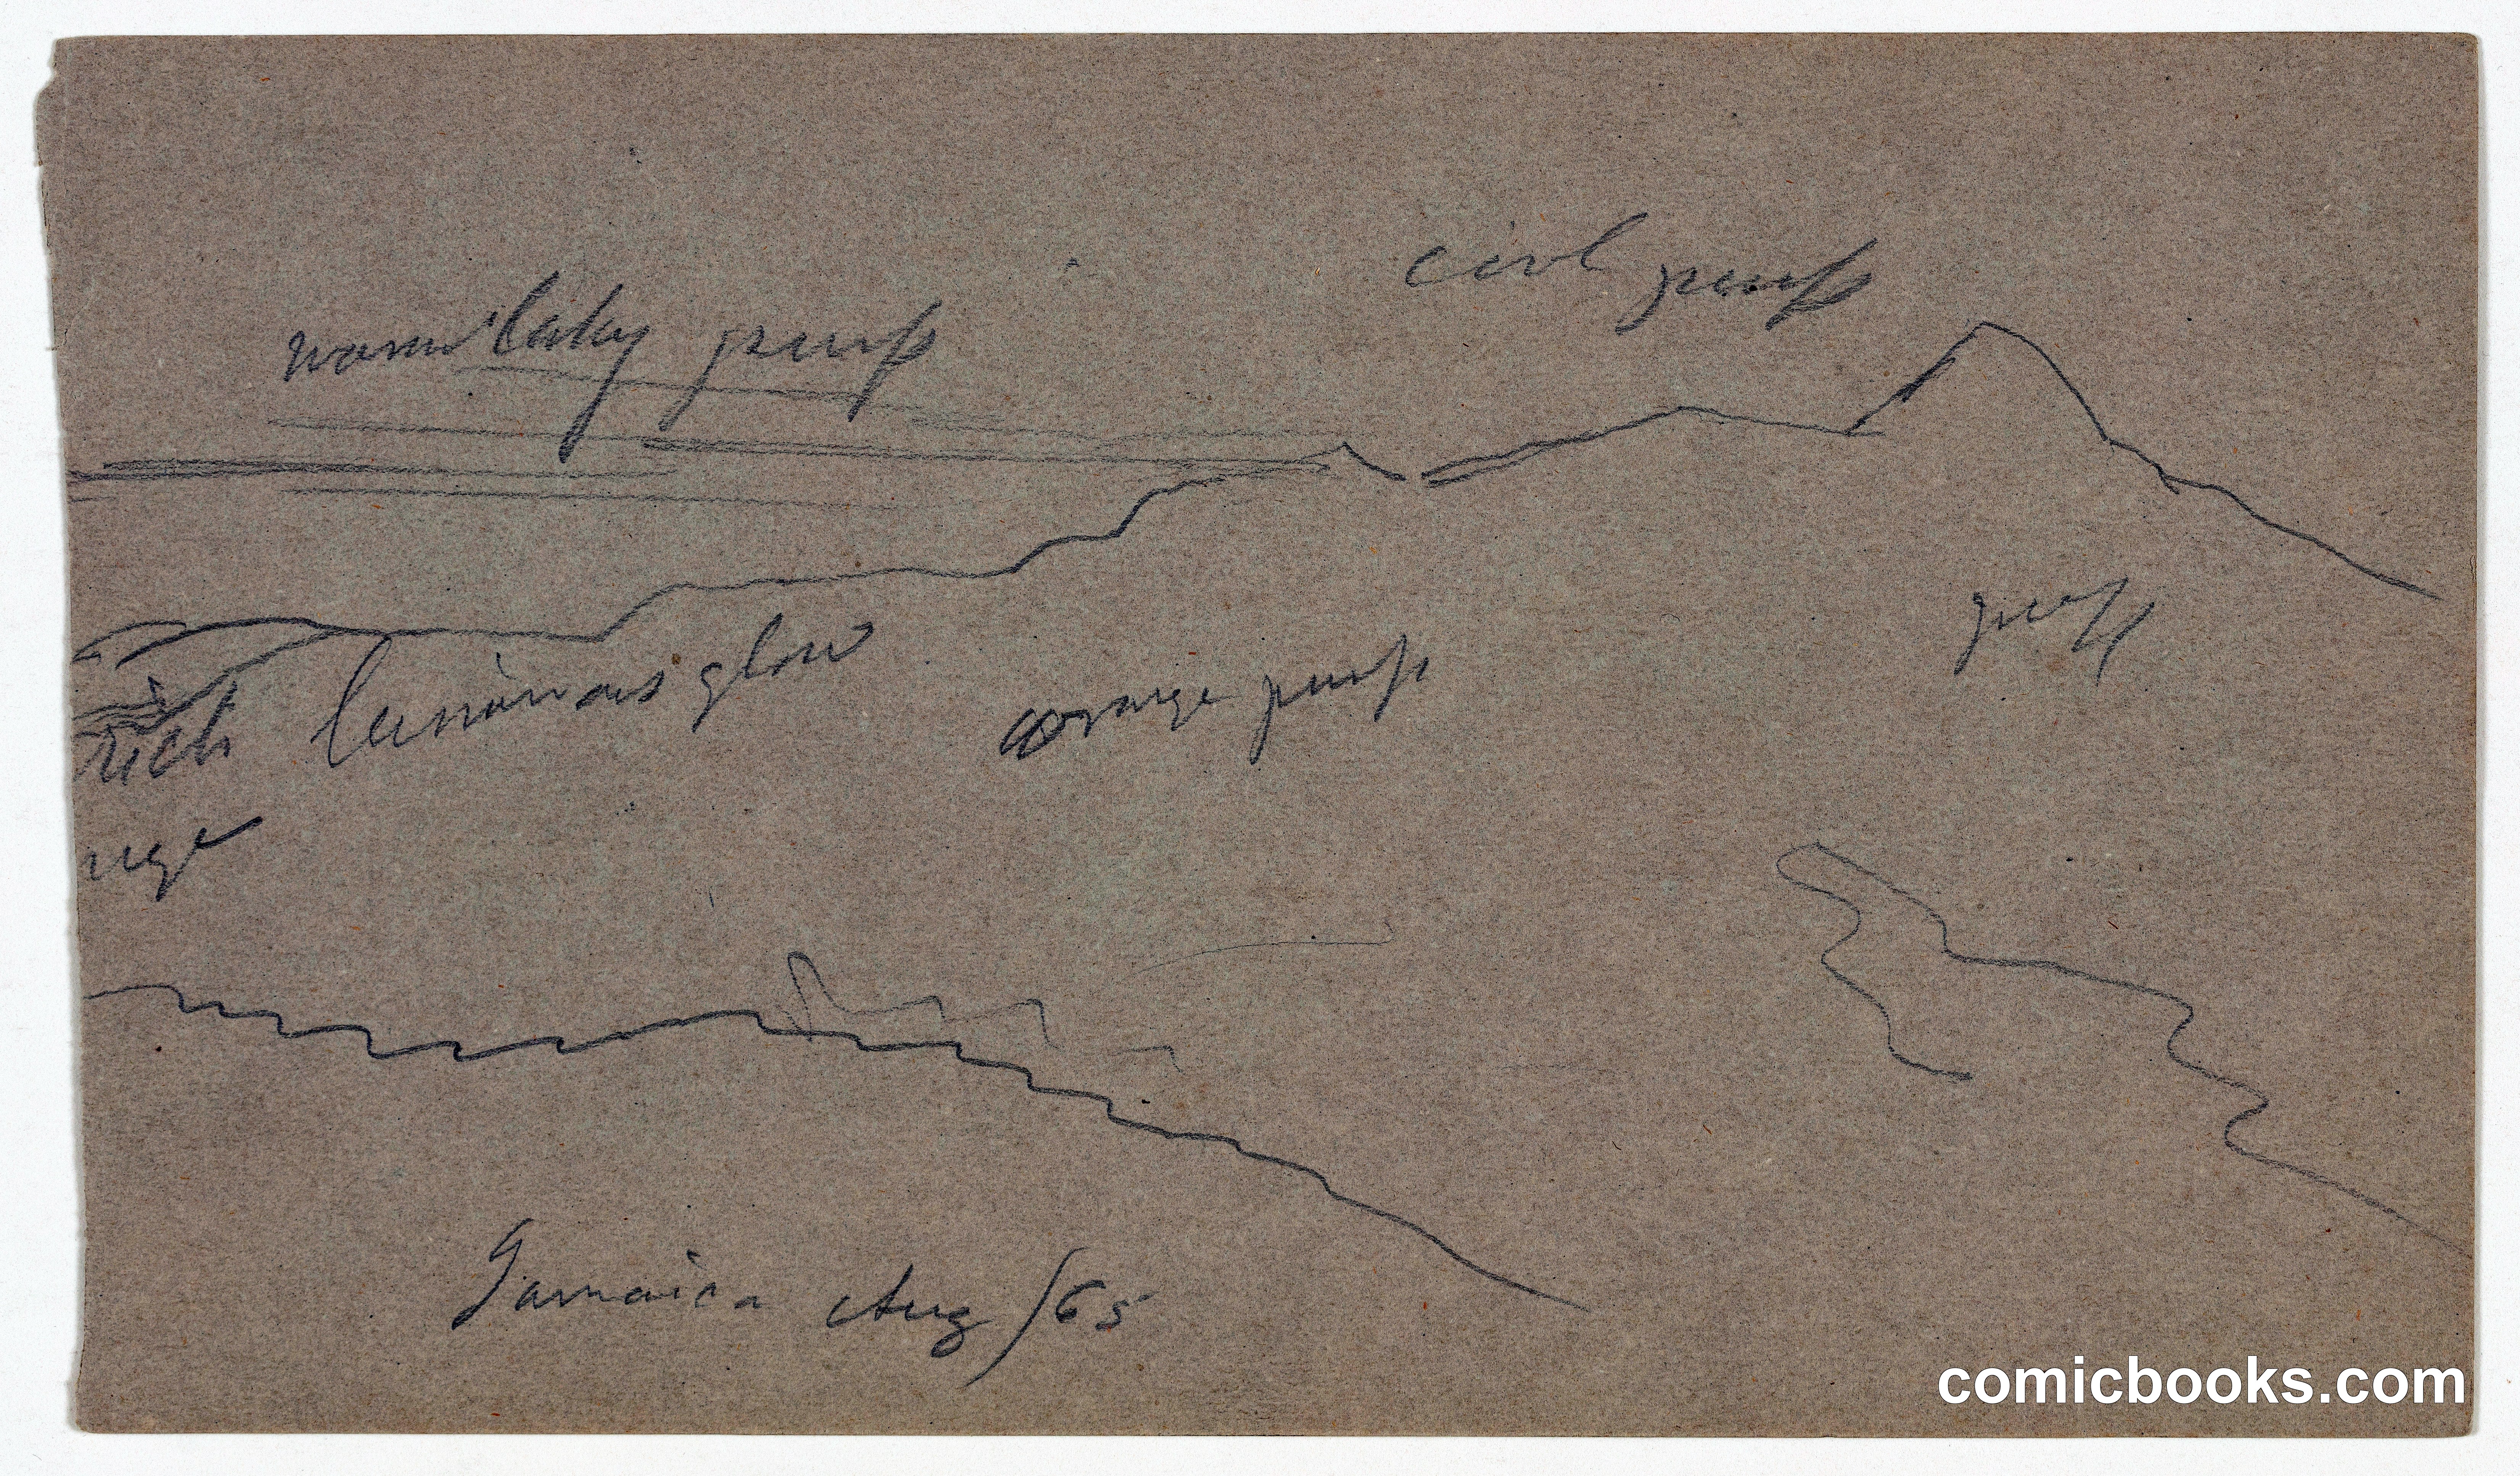 cool purp
warm laky purp
purp
rich luminous glow
orange purp
nge
Jamaica Aug/65
comicbooks.com